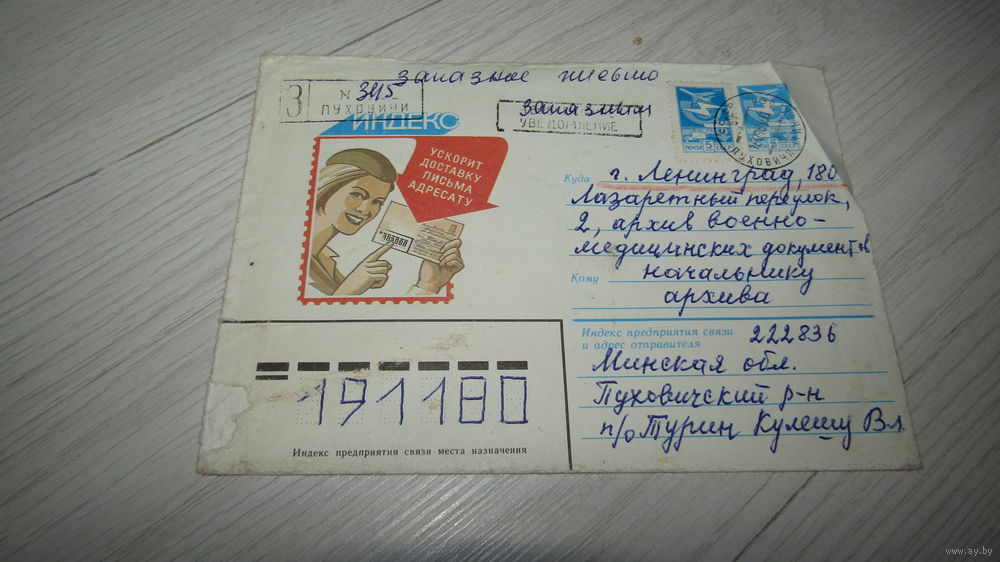 заказное письмо
З № 345
ПУХОВИЧИ
УВЕДОМЛЕНИЕ
ПОЧТА 5
ИНДЕКС
УСКОРИТ
ДОСТАВКУ
ПИСЬМА
АДРЕСАТУ
Куда г. Ленинград, 180
Лазаретный переулок,
2, архив военно-
медицинских документов
Кому начальнику
архива
Индекс предприятия связи
и адрес отправителя 222836
Минская обл.
Пуховичский р-н
п/о Турин Кулешу Вл.
191180
Индекс предприятия связи места назначения
www.ay.by